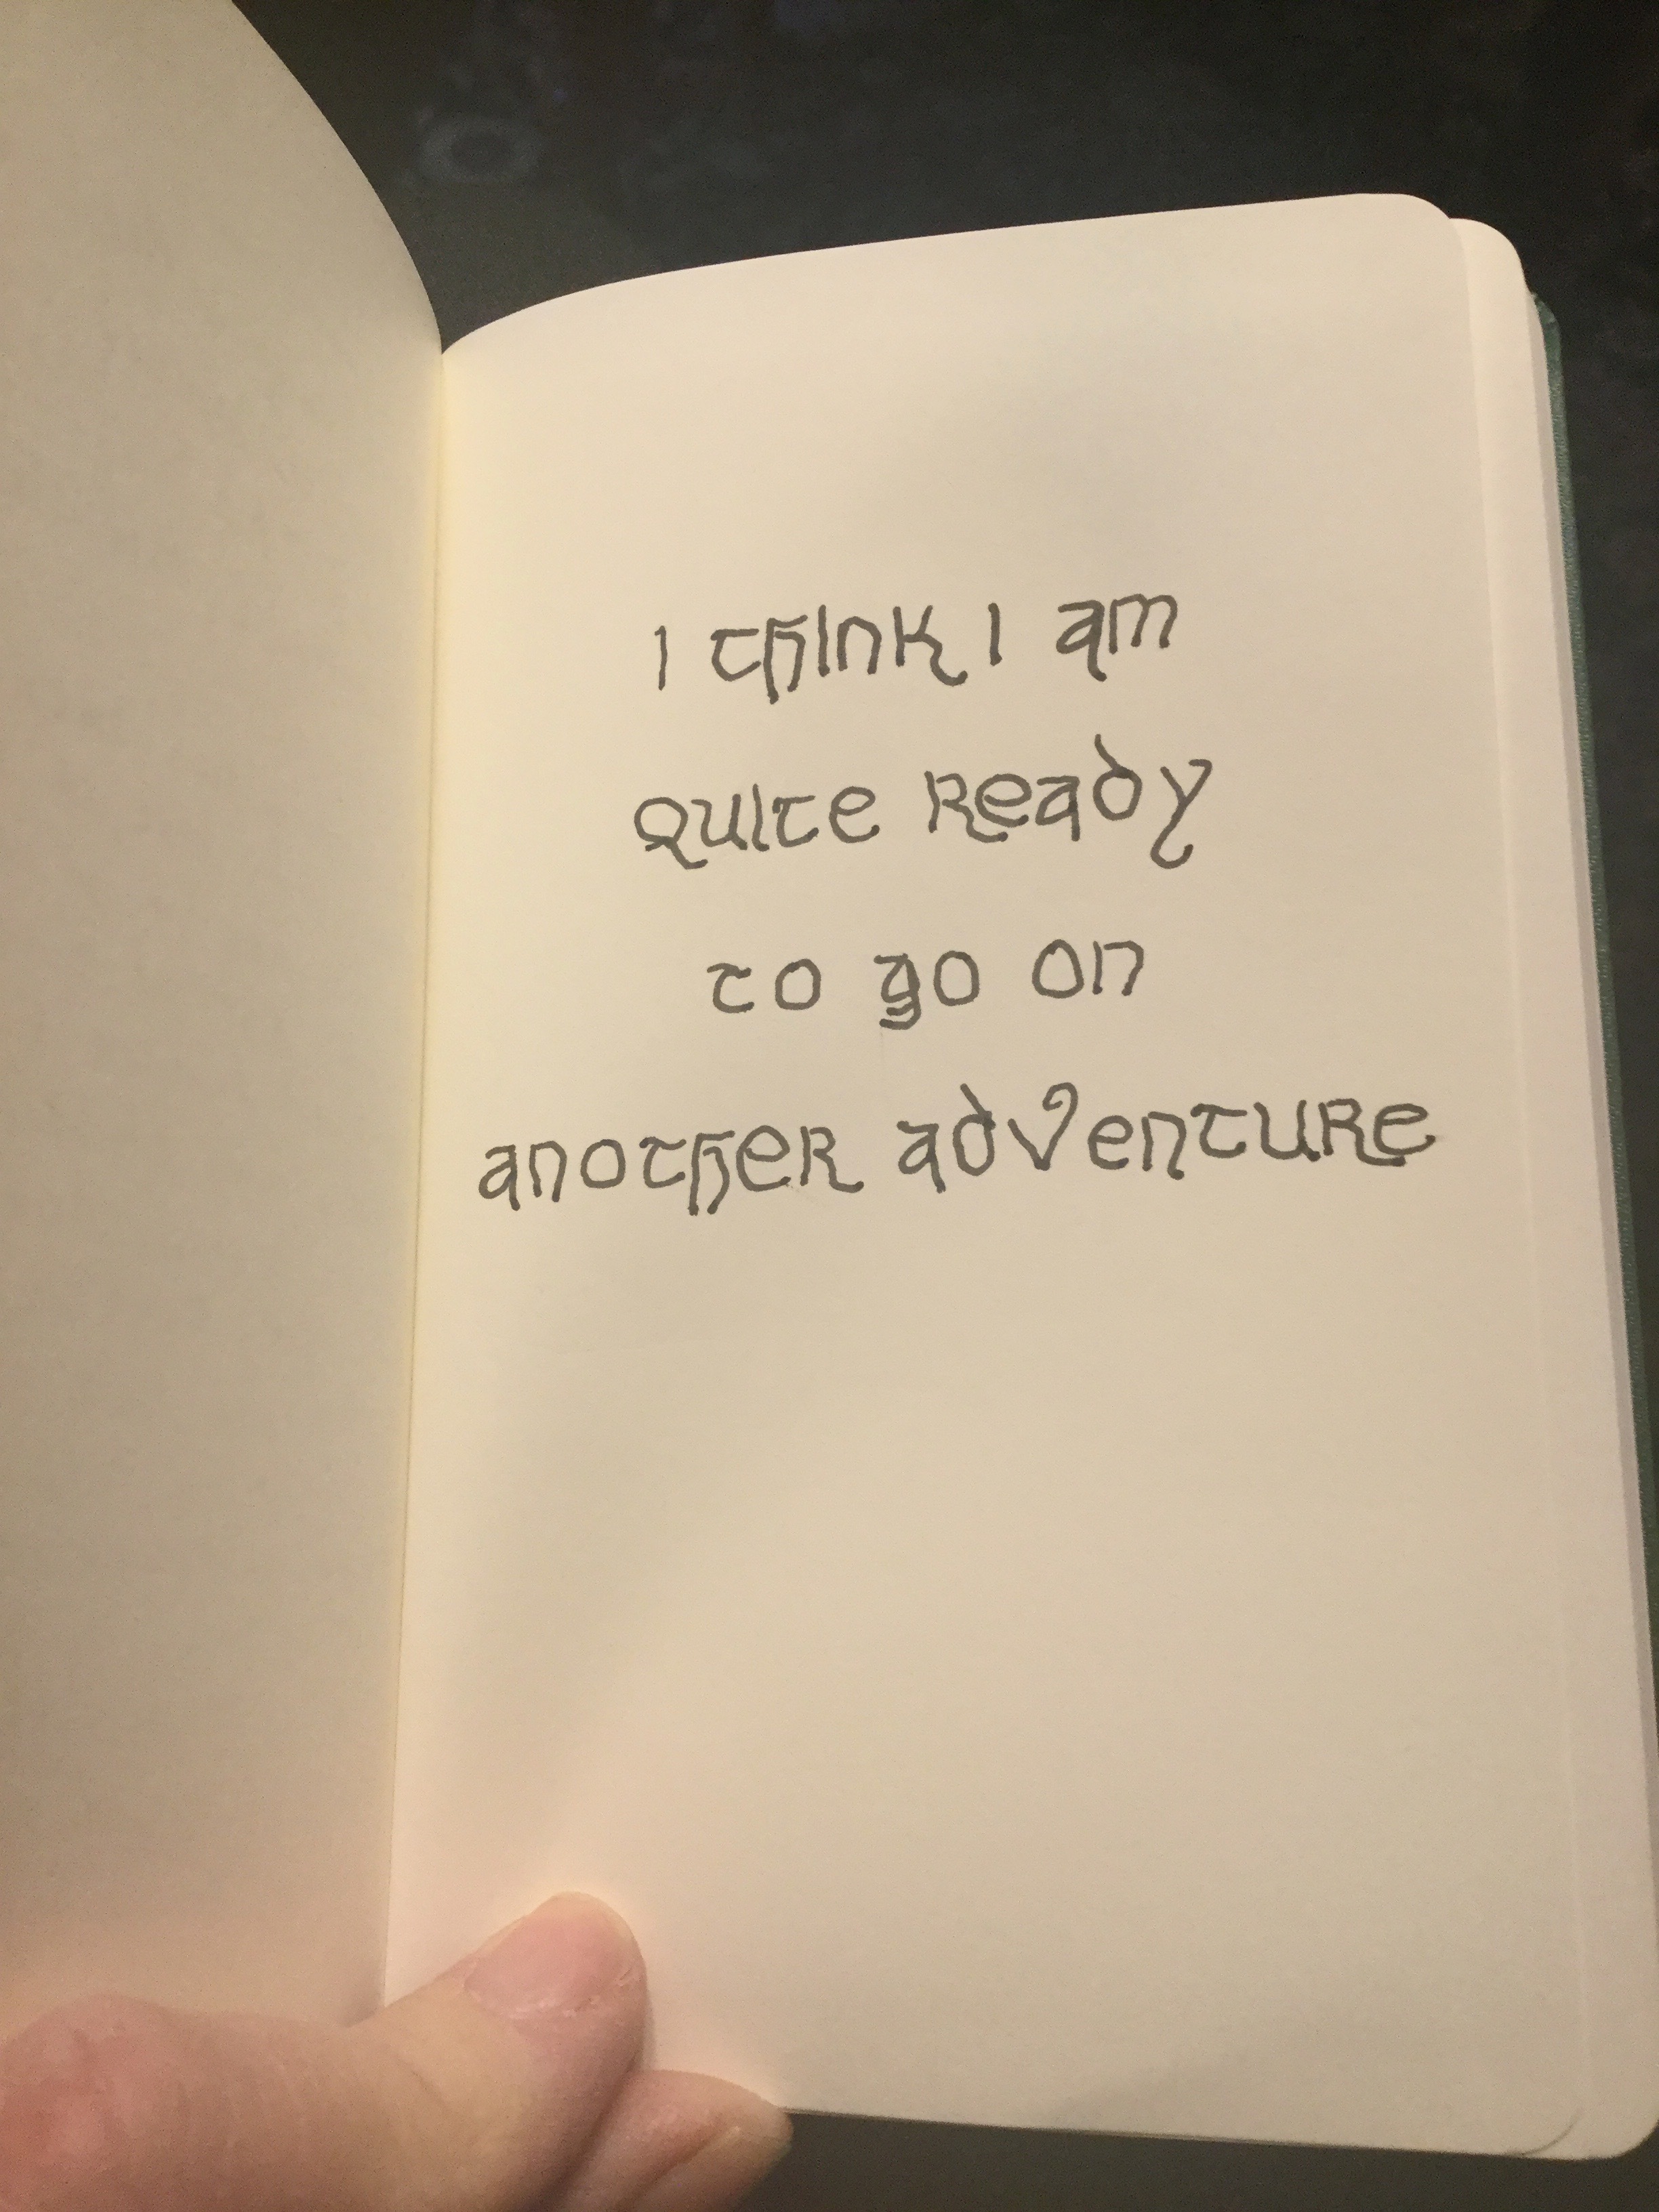 I think I am
Quite Ready
to go on
another adventure